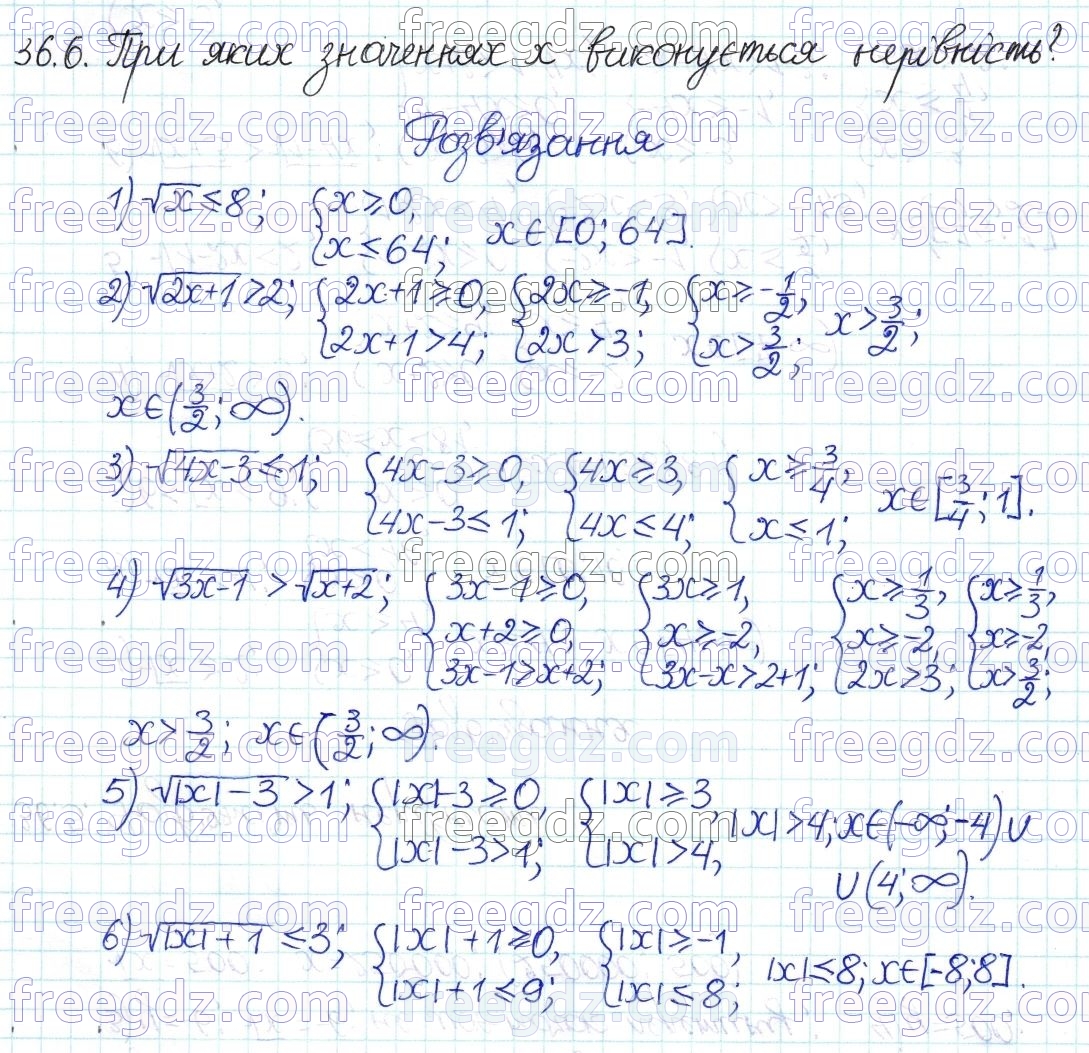 36.6. При яких значеннях x виконується нерівність?
Розв'язання
1) √x ≤ 8; {x ≥ 0, x ≤ 64; x ∈ [0; 64].
2) √(2x+1) > 2; {2x+1 ≥ 0, 2x+1 > 4; {2x ≥ -1, 2x > 3; {x ≥ -1/2, x > 3/2; x > 3/2;
x ∈ (3/2; ∞).
3) √(4x-3) ≤ 1; {4x-3 ≥ 0, 4x-3 ≤ 1; {4x ≥ 3, 4x ≤ 4; {x ≥ 3/4, x ≤ 1; x ∈ [3/4; 1].
4) √(3x-1) > √(x+2); {3x-1 ≥ 0, x+2 ≥ 0, 3x-1 > x+2; {3x ≥ 1, x ≥ -2, 3x-x > 2+1; {x ≥ 1/3, x ≥ -2, 2x > 3; {x ≥ 1/3, x ≥ -2, x > 3/2;
x > 3/2; x ∈ (3/2; ∞).
5) √(|x|-3) > 1; {|x|-3 ≥ 0, |x|-3 > 1; {|x| ≥ 3, |x| > 4, |x| > 4; x ∈ (-∞; -4) ∪
∪ (4; ∞).
6) √(|x|+1) ≤ 3; {|x|+1 ≥ 0, |x|+1 ≤ 9; {|x| ≥ -1, |x| ≤ 8; |x| ≤ 8; x ∈ [-8; 8].
freegdz.com